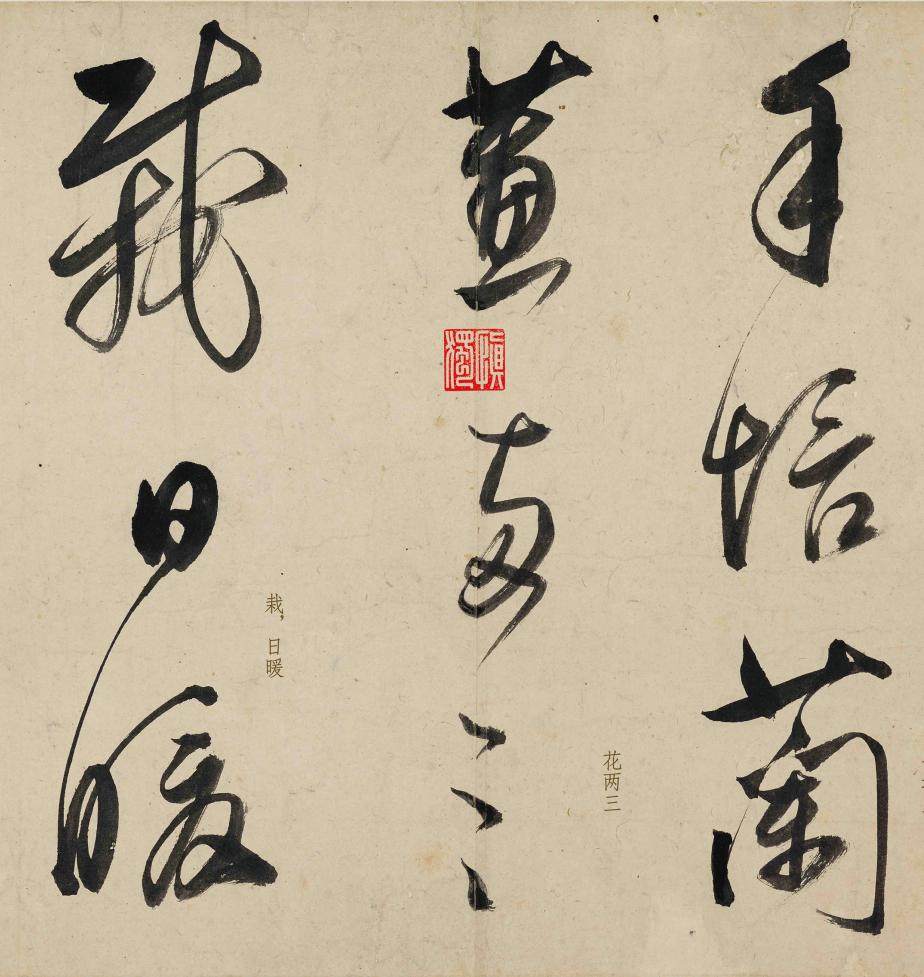 手培蘭
花两三
蕙兩三
慎獨
栽，日暖
栽日暖